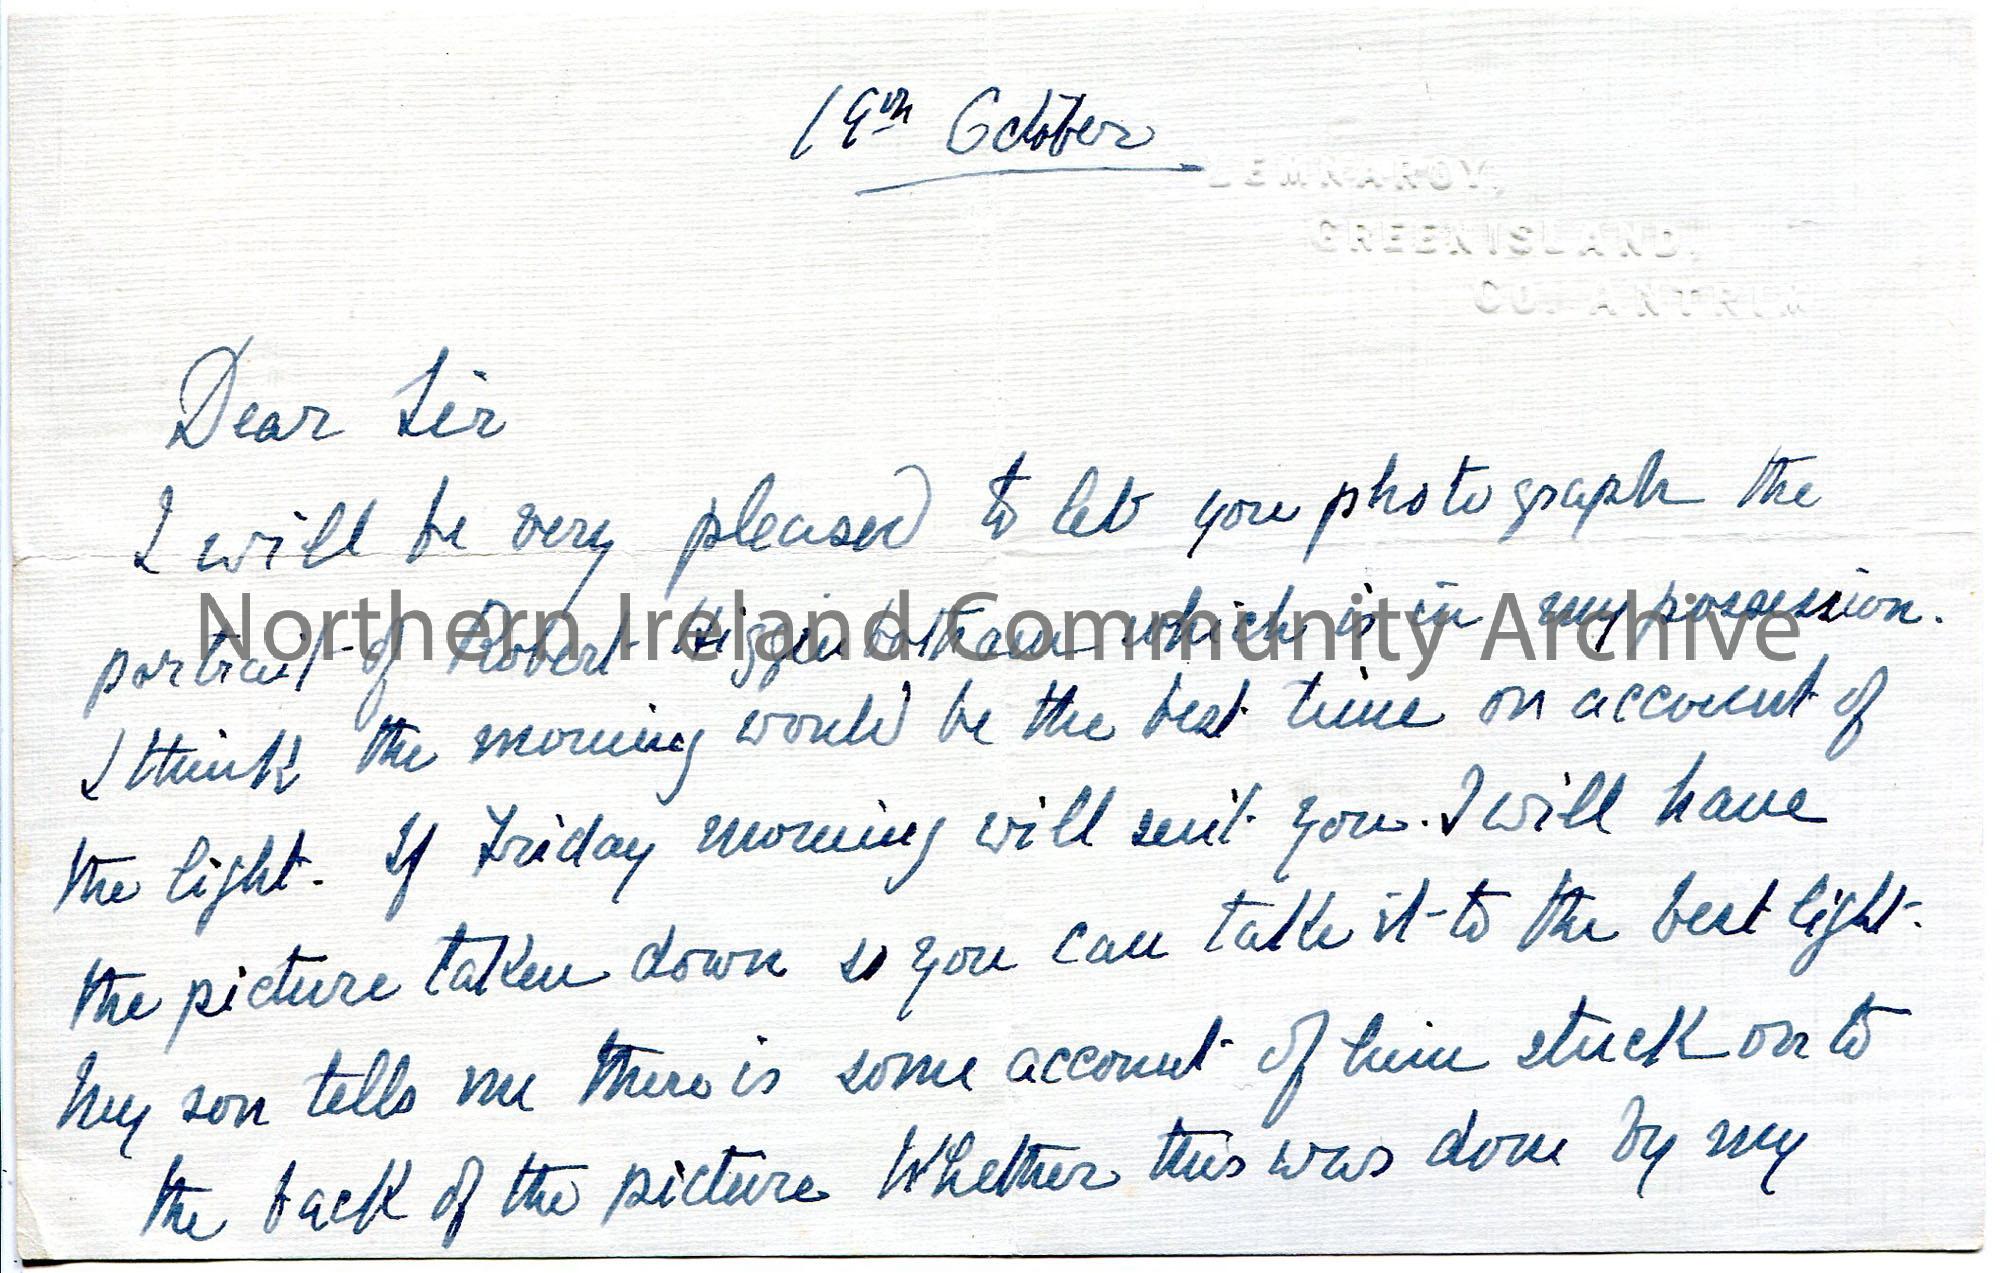 19th October
LEMNAROY,
GREENISLAND,
CO. ANTRIM
Dear Sir
I will be very pleased to let you photograph the
portrait of Robert Higginbotham which is in my possession.
Northern Ireland Community Archive
I think the morning would be the best time on account of
the light. If Friday morning will suit you. I will have
the picture taken down so you can take it to the best light.
My son tells me there is some account of him stuck on to
the back of the picture Whether this was done by my